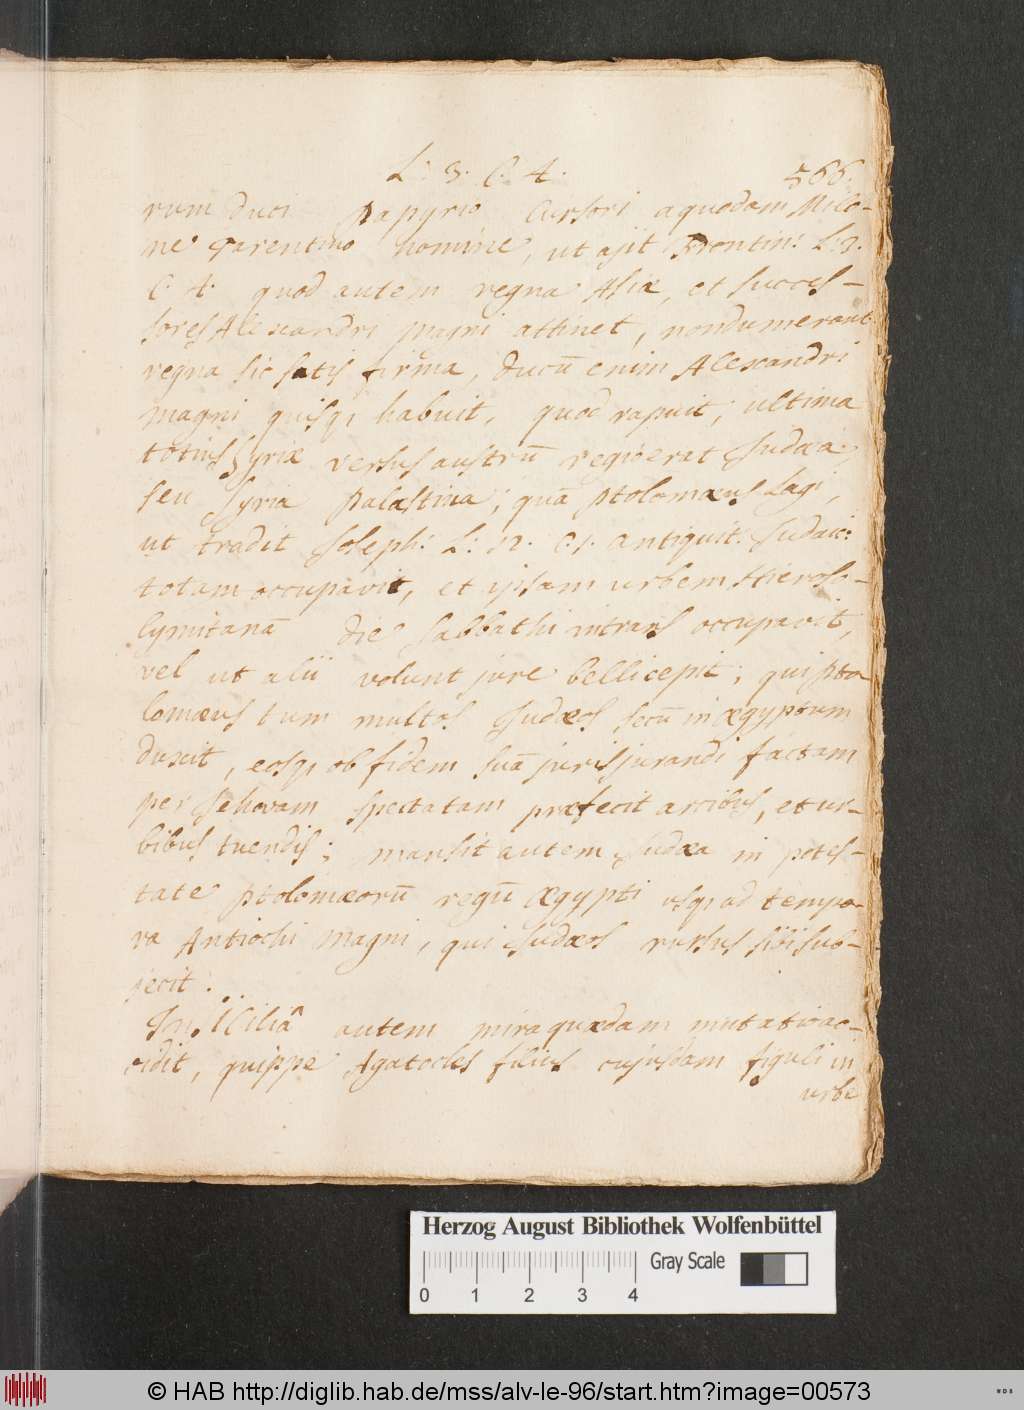 L: 3. C. 4. 566.
rum duci Papyrio Cursori a quodam Milo-
ne Tarentino homine, ut ajit Frontin: L: 3.
C. 4. quod autem regna Asiæ, et succes-
sores Alexandri magni attinet, nondum erant
regna sic satis firma, ducū enim Alexandri
magni quisqꝫ habuit, quod rapuit; ultima
totius Syriæ versus austrū regio erat Judæa,
seu Syria Palæstina; quā Ptolomæus Lagi,
ut tradit Joseph: L: 12. C. 1. Antiquit: Judaic:
totam occupavit, et ipsam urbem Hieroso-
lymitanā die Sabbathi intrans occupavit,
vel ut alii volunt jure belli cepit; qui Pto
lomæus tum multos Judæos secū in Ægyptum
duxit, eosqꝫ ob fidem suā jurisjurandi factam
per Jehovam spectatam præfecit arcibus, et ur-
bibus tuendis; mansit autem Judæa in potes-
tate Ptolomæorū regū Ægypti usqꝫ ad tempo-
ra Antiochi magni, qui Judæos rursus sibi sub-
jecit.
In Siciliâ autem mira quædam mutatio ac-
cidit, quippe Agatocles filius cujusdam figuli in
urbe
Herzog August Bibliothek Wolfenbüttel
Gray Scale
0 1 2 3 4
© HAB http://diglib.hab.de/mss/alv-le-96/start.htm?image=00573